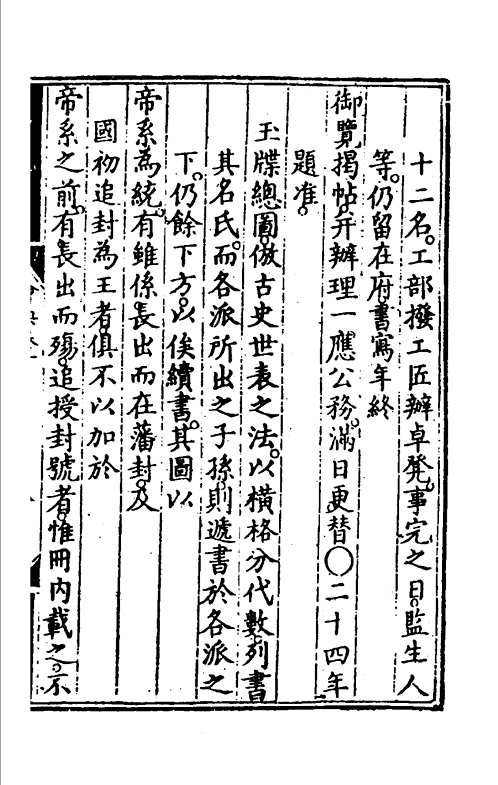 十二名。工部撥工匠辦卓凳。事完之日。監生人
等。仍留在府書寫年終
御覽揭帖。并辦理一應公務。滿日更替○二十四年
題准。
玉牒總圖。倣古史世表之法。以橫格分代數。列書
其名氏。而各派所出之子孫。則遞書於各派之
下。仍餘下方。以俟續書。其圖以
帝系為統。有雖係長出而在藩封。及
國初追封為王者。俱不以加於
帝系之前。有長出而殤。追授封號者。惟冊內載之。不